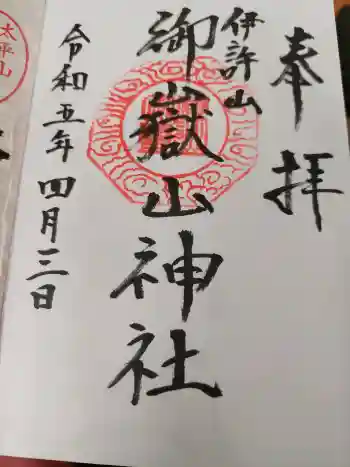 奉拝
伊許山
御嶽山神社
令和五年四月三日
太平山